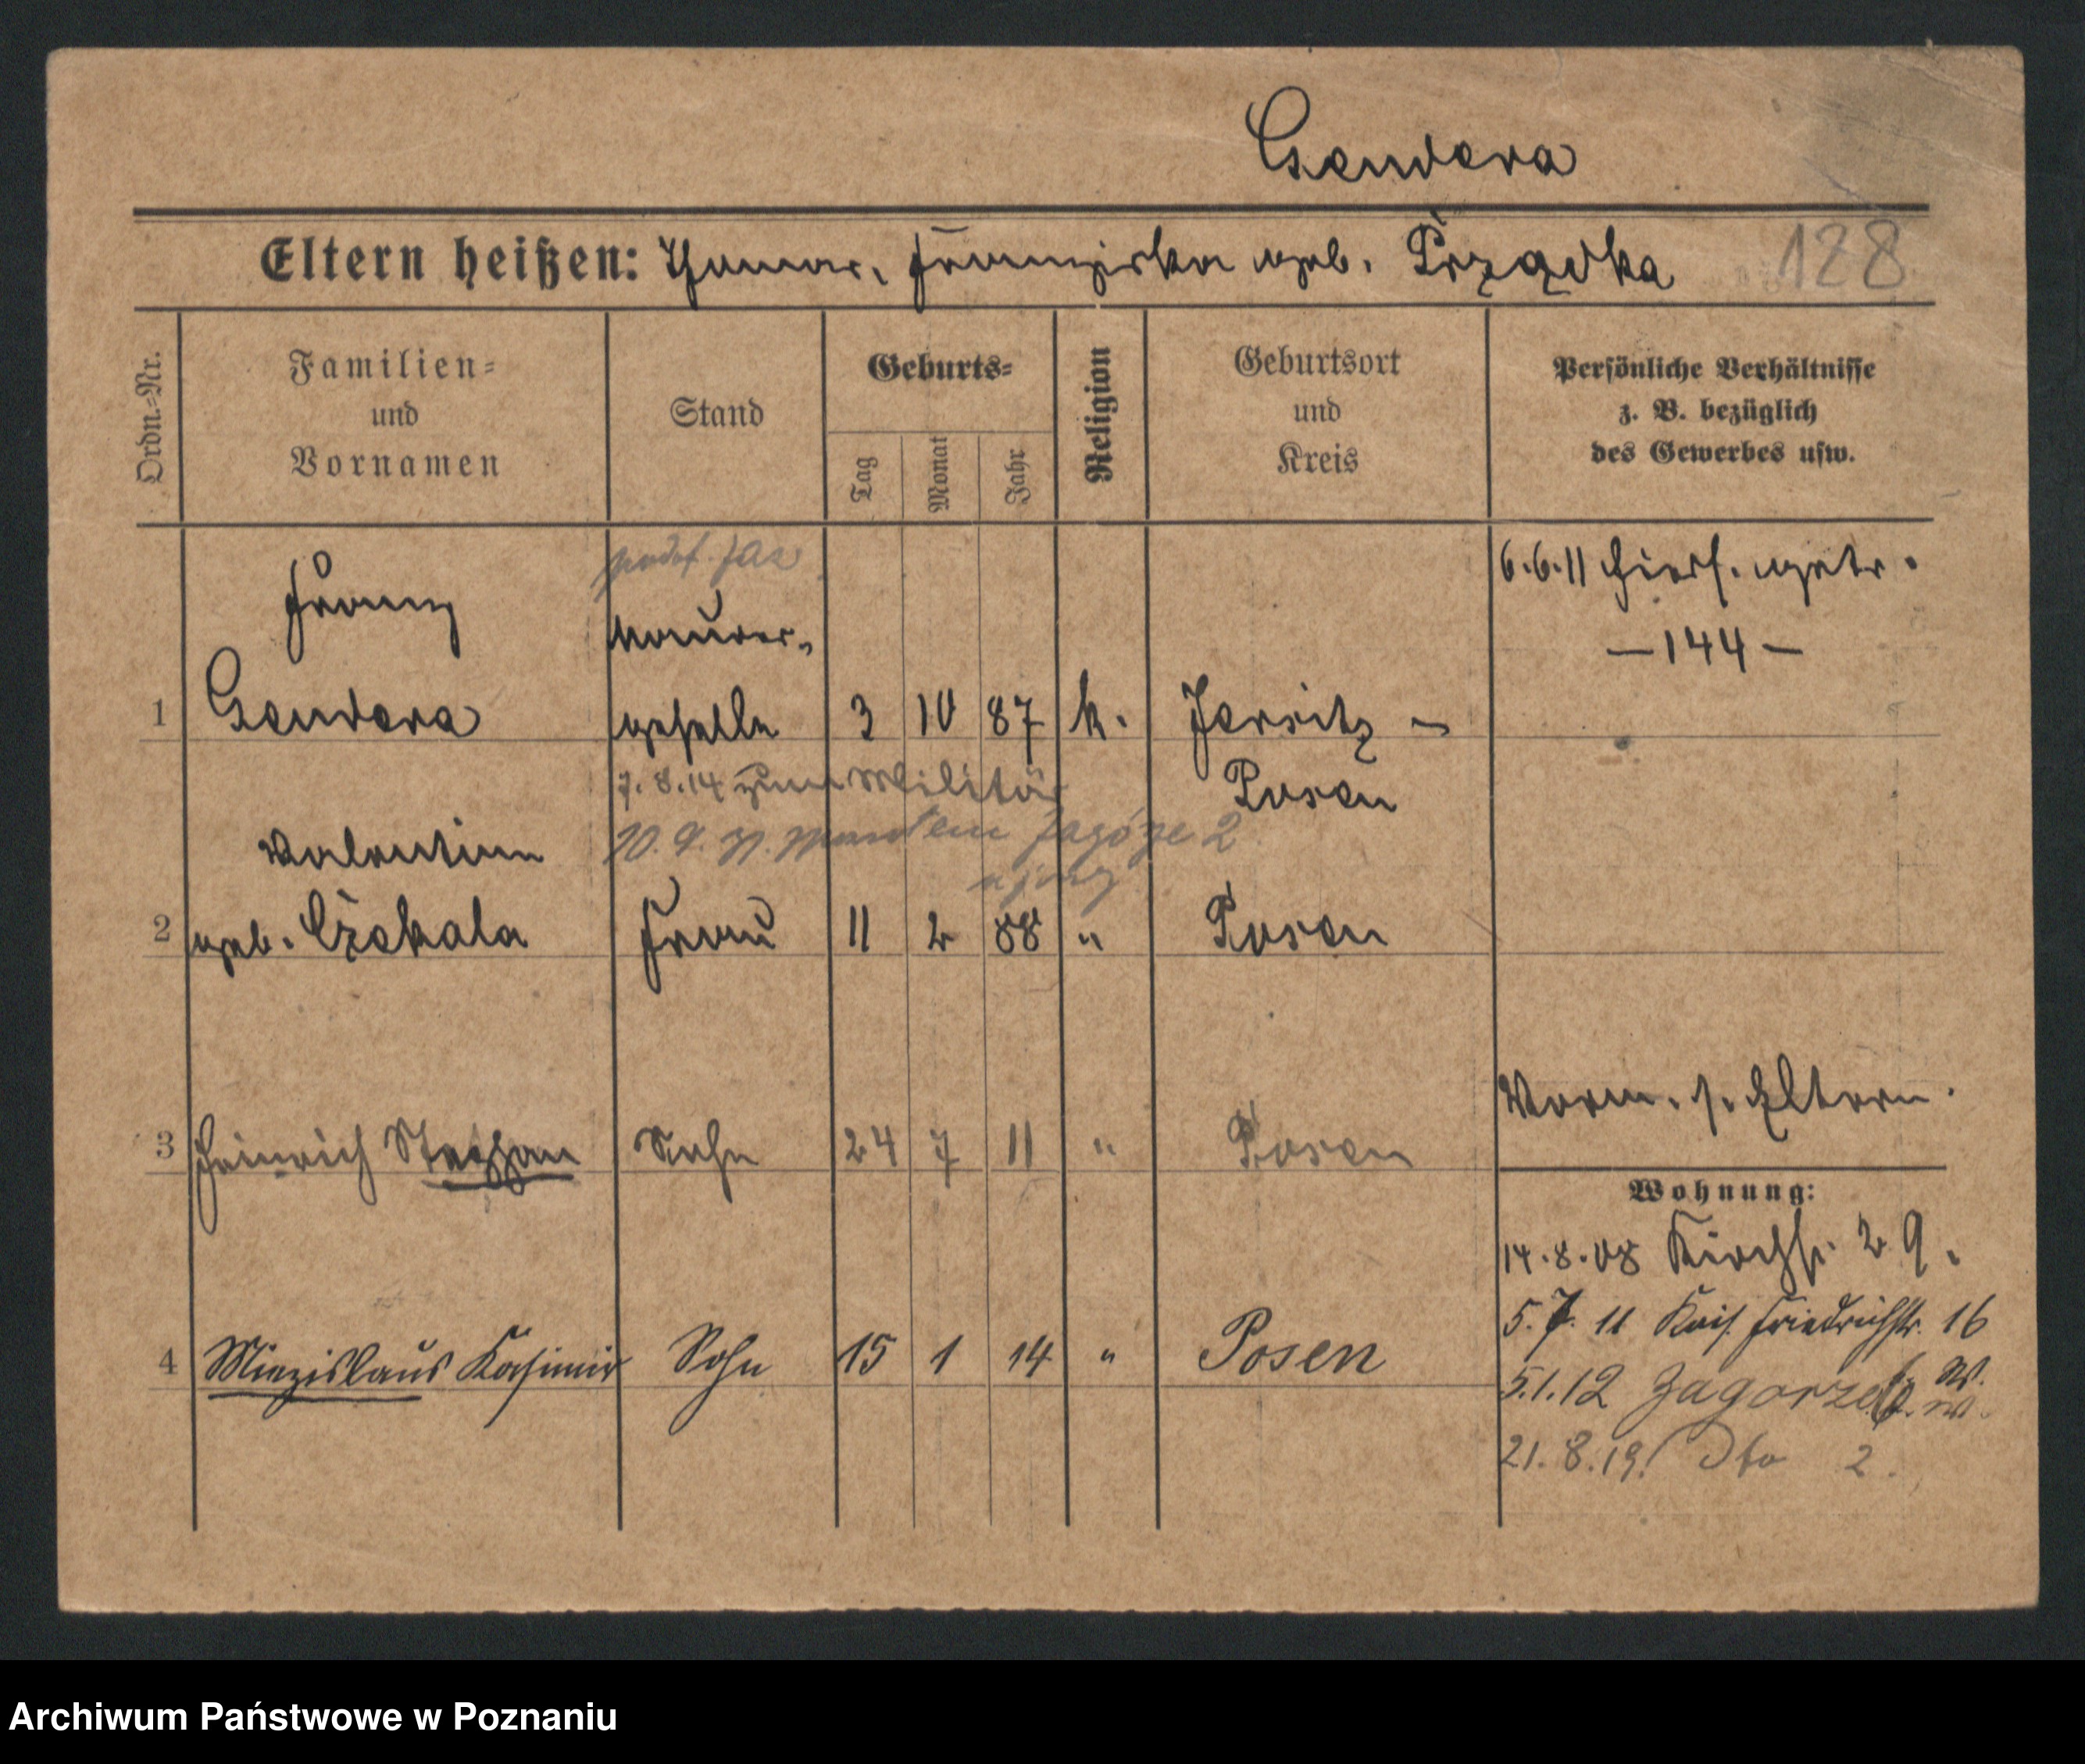 Gendera
Eltern heißen: Thomas, Franziska geb. Prządka
128
Ordn.-Nr.
Familien-
und
Vornamen
Stand
Geburts-
Tag
Monat
Jahr
Religion
Geburtsort
und
Kreis
Persönliche Verhältnisse
z. B. bezüglich
des Gewerbes usw.
6.6.11 hiers. getr.
—144—
Franz
Maurer-
1 Gendera geselle 3 10 87 k. Jersitz -
Posen
7.8.14 zum Militär
Valentine
2 geb. Czekala Frau 11 2 88 " Posen
Vorm. s. Eltern.
3 Heinrich Stephan Sohn 24 7 11 " Posen
4 Miezislaus Kasimir Sohn 15 1 14 " Posen
Wohnung:
14.8.08 Kirchstr. 29.
5.7.11 Kais. Friedrichstr. 16
5.1.12 Zagorze
21.8.19. Dto 2.
Archiwum Państwowe w Poznaniu